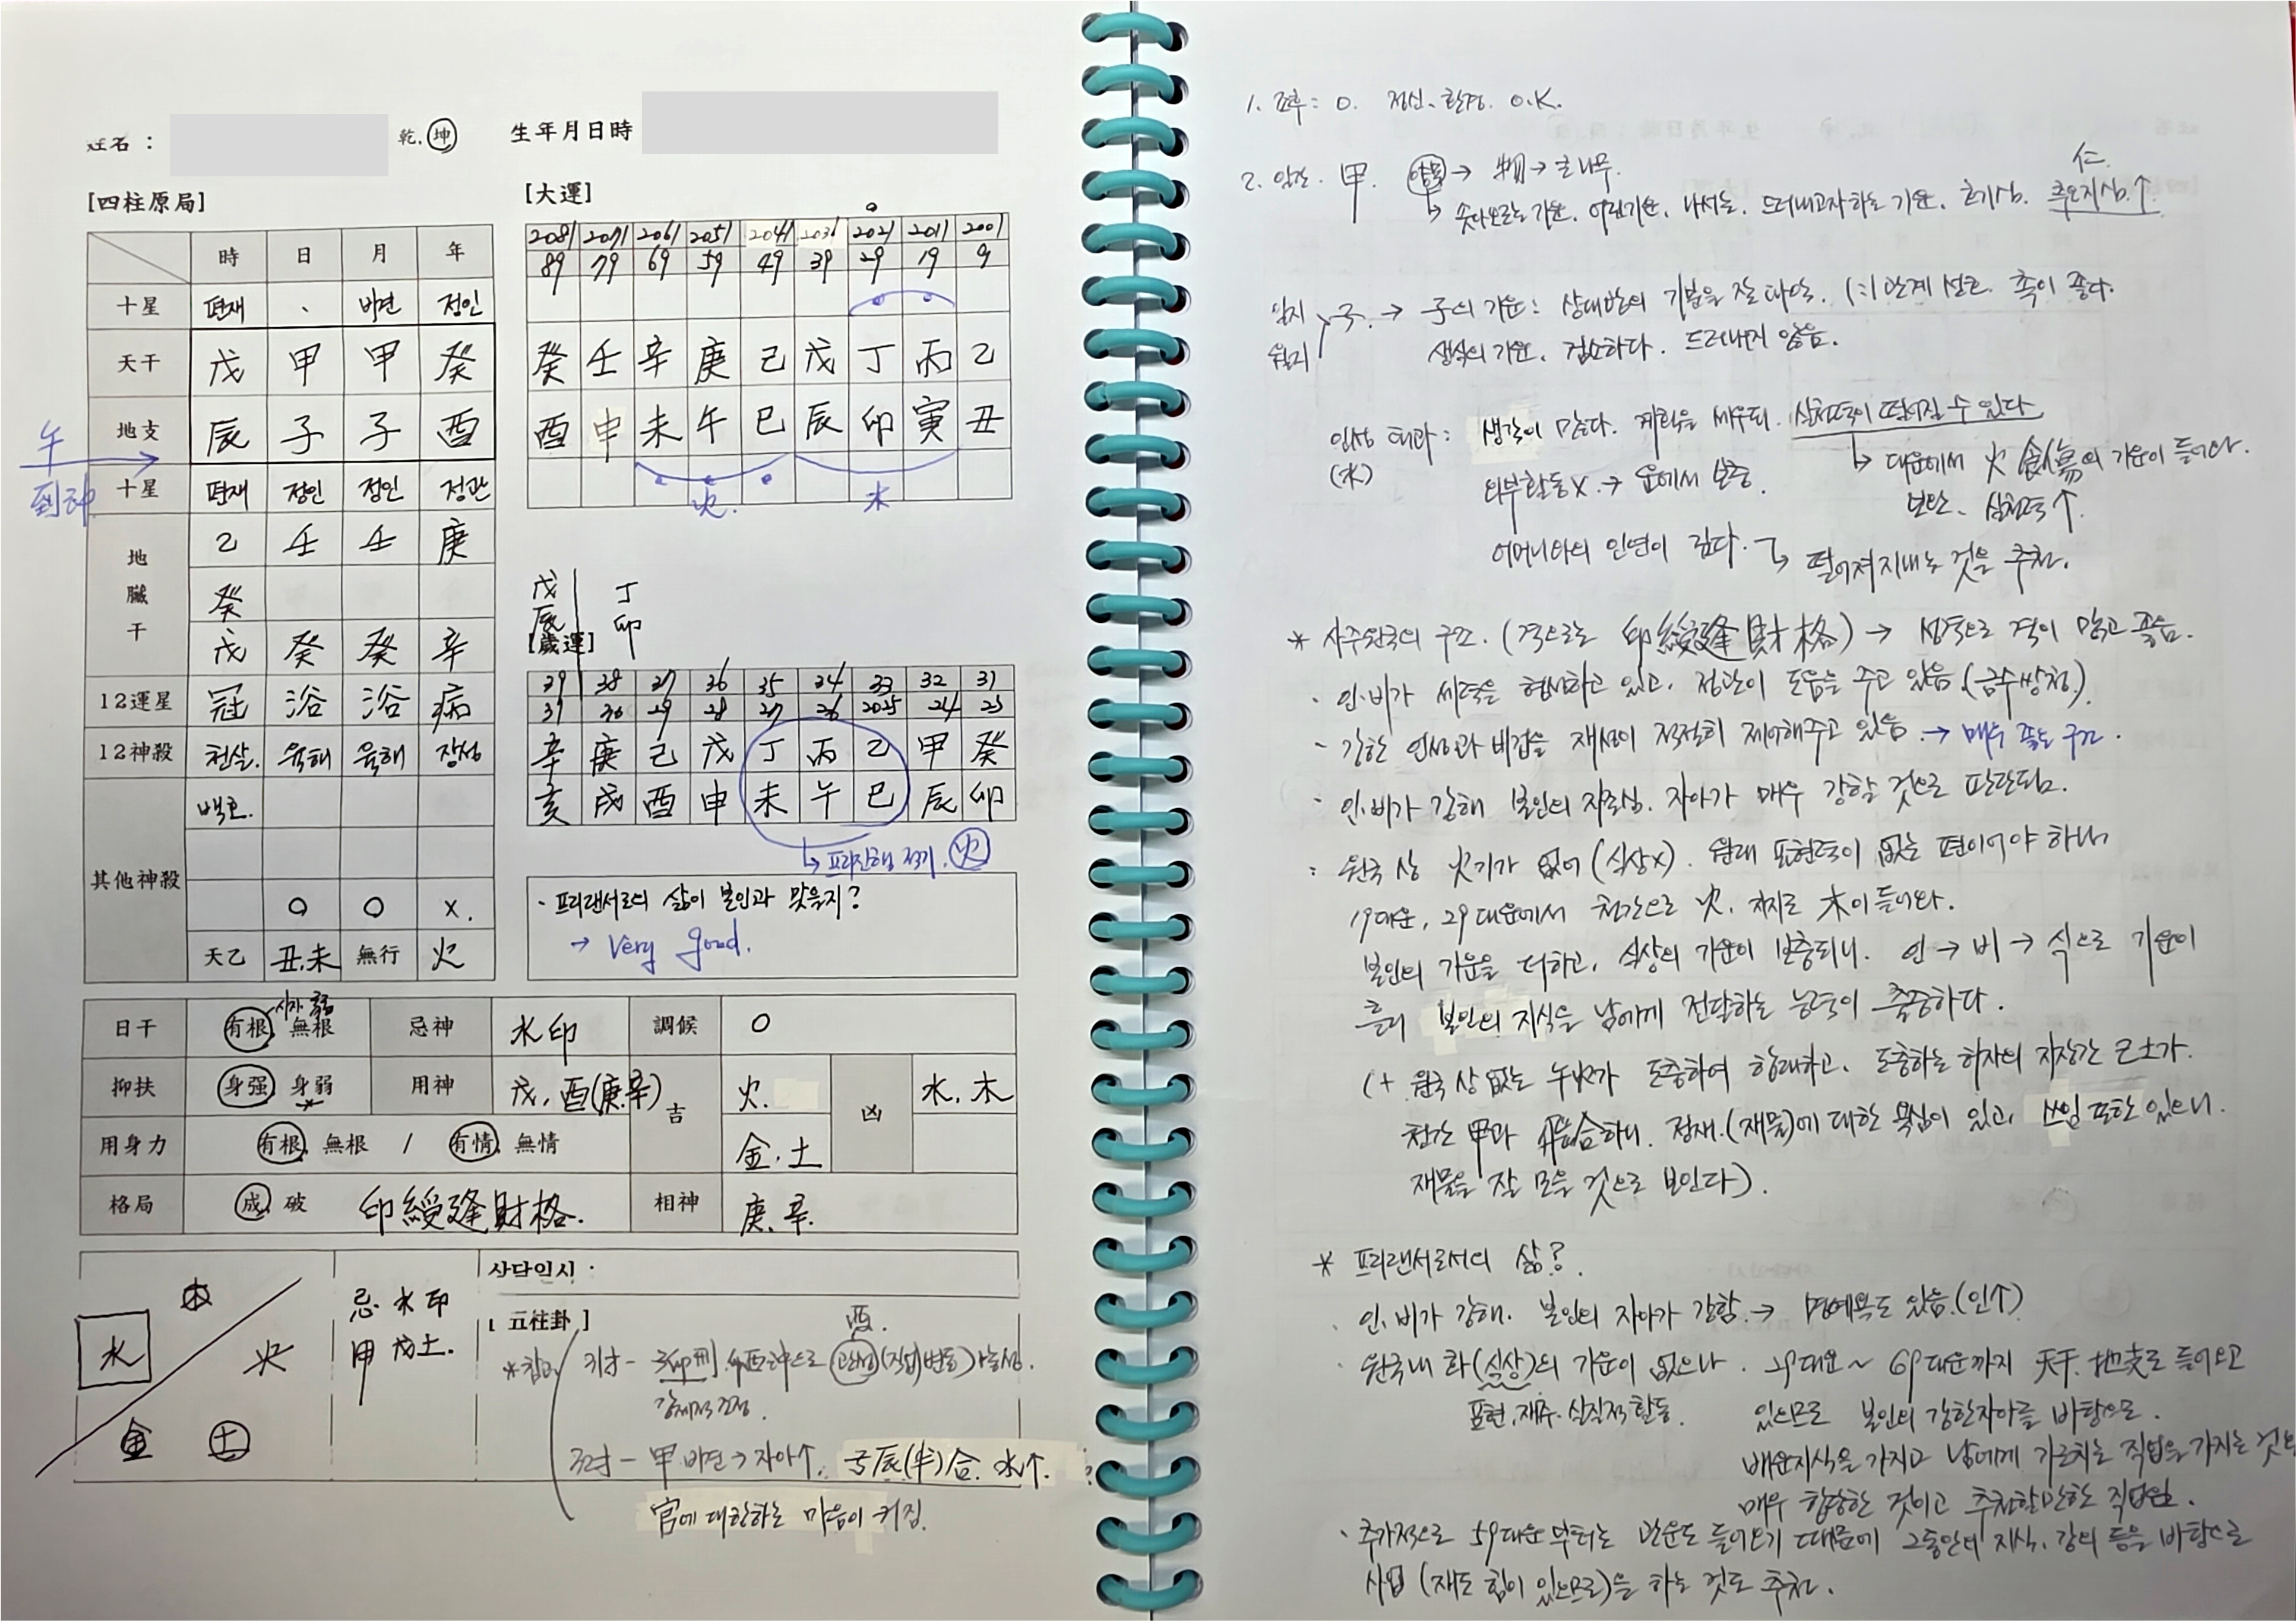 姓名 : 乾, 坤 生年月日時
[四柱原局]
時 日 月 年
十星 편재 、 비견 정인
天干 戊 甲 甲 癸
地支 辰 子 子 酉
十星 편재 정인 정인 정관
地臟干 乙 壬 壬 庚
癸
戊 癸 癸 辛
12運星 冠 浴 浴 病
12神殺 천살. 육해 육해 장성
其他神殺 백호.
O O X.
天乙 丑.未 無行 火
午
到冲
[大運]
2081 2071 2061 2051 2041 2031 2021 2011 2001
89 79 69 59 49 39 29 19 9
癸 壬 辛 庚 己 戊 丁 丙 乙
酉 申 未 午 巳 辰 卯 寅 丑
火. 木
戊 丁
辰 卯
[歲運]
39 38 37 36 35 34 33 32 31
31 30 29 28 27 26 2025 24 23
辛 庚 己 戊 丁 丙 乙 甲 癸
亥 戌 酉 申 未 午 巳 辰 卯
↳ 프리진행 적기. 火
· 프리랜서로의 삶이 본인과 맞을지?
→ Very good.
日干 有根, 無根 忌神 水印 調候 O
抑扶 身强, 身弱 用神 戊, 酉(庚.辛) 吉 火. 凶 水, 木
用身力 有根, 無根 / 有情, 無情 金.土
格局 成, 破 印綬逢財格. 相神 庚.辛.
木
水 火
金 土
忌. 水印
甲 戊土.
상담일시 :
[ 五柱卦 ]
酉.
*참고 키녀 - 子卯刑. 卯酉冲으로 관성(직업변동) 가능성.
강제적 조정.
甲 비견 → 자아↑. 子辰(半)合. 水↑.
官에 대항하는 마음이 커짐.
1. 조후 : O. 정신. 환경. O.K.
2. 일간. 甲. 양목 → 物 → 큰나무. 仁.
↳ 솟아오르는 기운. 어린기운. 나서는. 드러내고자하는 기운. 호기심. 측은지심↑.
일지 월지 > 子. → 子의 기운 : 상대방의 기분을 잘 파악. (:) 관계 선호. 촉이 좋다.
생식의 기운. 검소하다. 드러내지 않음.
인성 태과 : (水) 생각이 많다. 계획을 세우되. 실천력이 떨어질 수 있다
↳ 대운에서 火 食傷의 기운이 들어와.
외부활동X. → 운에서 보충. 보완. 실천력↑.
어머니와의 인연이 깊다. ↳ 떨어져지내는 것을 추천.
* 사주원국의 구조. (격으로는 印綬逢財格) → 성격으로 격이 맑고 좋음.
· 인·비가 세력을 형성하고 있고. 정관이 도움을 주고 있음.(금수쌍청.)
- 강한 인성과 비겁을 재성이 적절히 제어해주고 있음. → 매우 좋은 구조.
· 인.비가 강해 본인의 자존심. 자아가 매우 강할 것으로 판단됨.
: 원국 상 火기가 없어 (식상X). 원래 표현력이 없는 편이어야 하나
19대운, 29대운에서 천간으로 火. 지지로 木이 들어와.
본인의 기운을 더하고. 식상의 기운이 보충되니. 인 → 비 → 식으로 기운이
흘러 본인의 지식을 남에게 전달하는 능력이 출중하다.
(+ 원국 상 없는 午火가 도충하여 향래하고. 도충하는 허자의 지장간 己土가.
천간 甲과 合하니. 정재.(재물)에 대한 욕심이 있고, 쓰임 또한 있으니.
재물을 잘 모을 것으로 보인다).
* 프리랜서로서의 삶?.
· 인.비가 강해. 본인의 자아가 강함. → 명예욕도 있음.(인↑)
· 원국내 화(식상)의 기운이 없으나. 19대운 ~ 69대운까지 天干.地支로 들어오고
표현.재주.실질적 활동. 있으므로 본인의 강한자아를 바탕으로.
배운지식을 가지고 남에게 가르치는 직업을 가지는 것은
매우 합당한 것이고 추천할만한 직업임.
· 추가적으로 59대운부터는 관운도 들어오기 때문에 그동안의 지식, 강의 등을 바탕으로
사업 (재도 힘이 있으므로)을 하는 것도 추천.